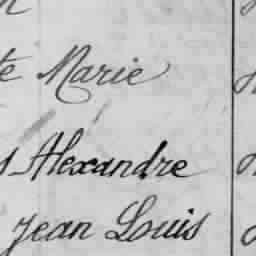 Marie
Alexandre
Jean Louis